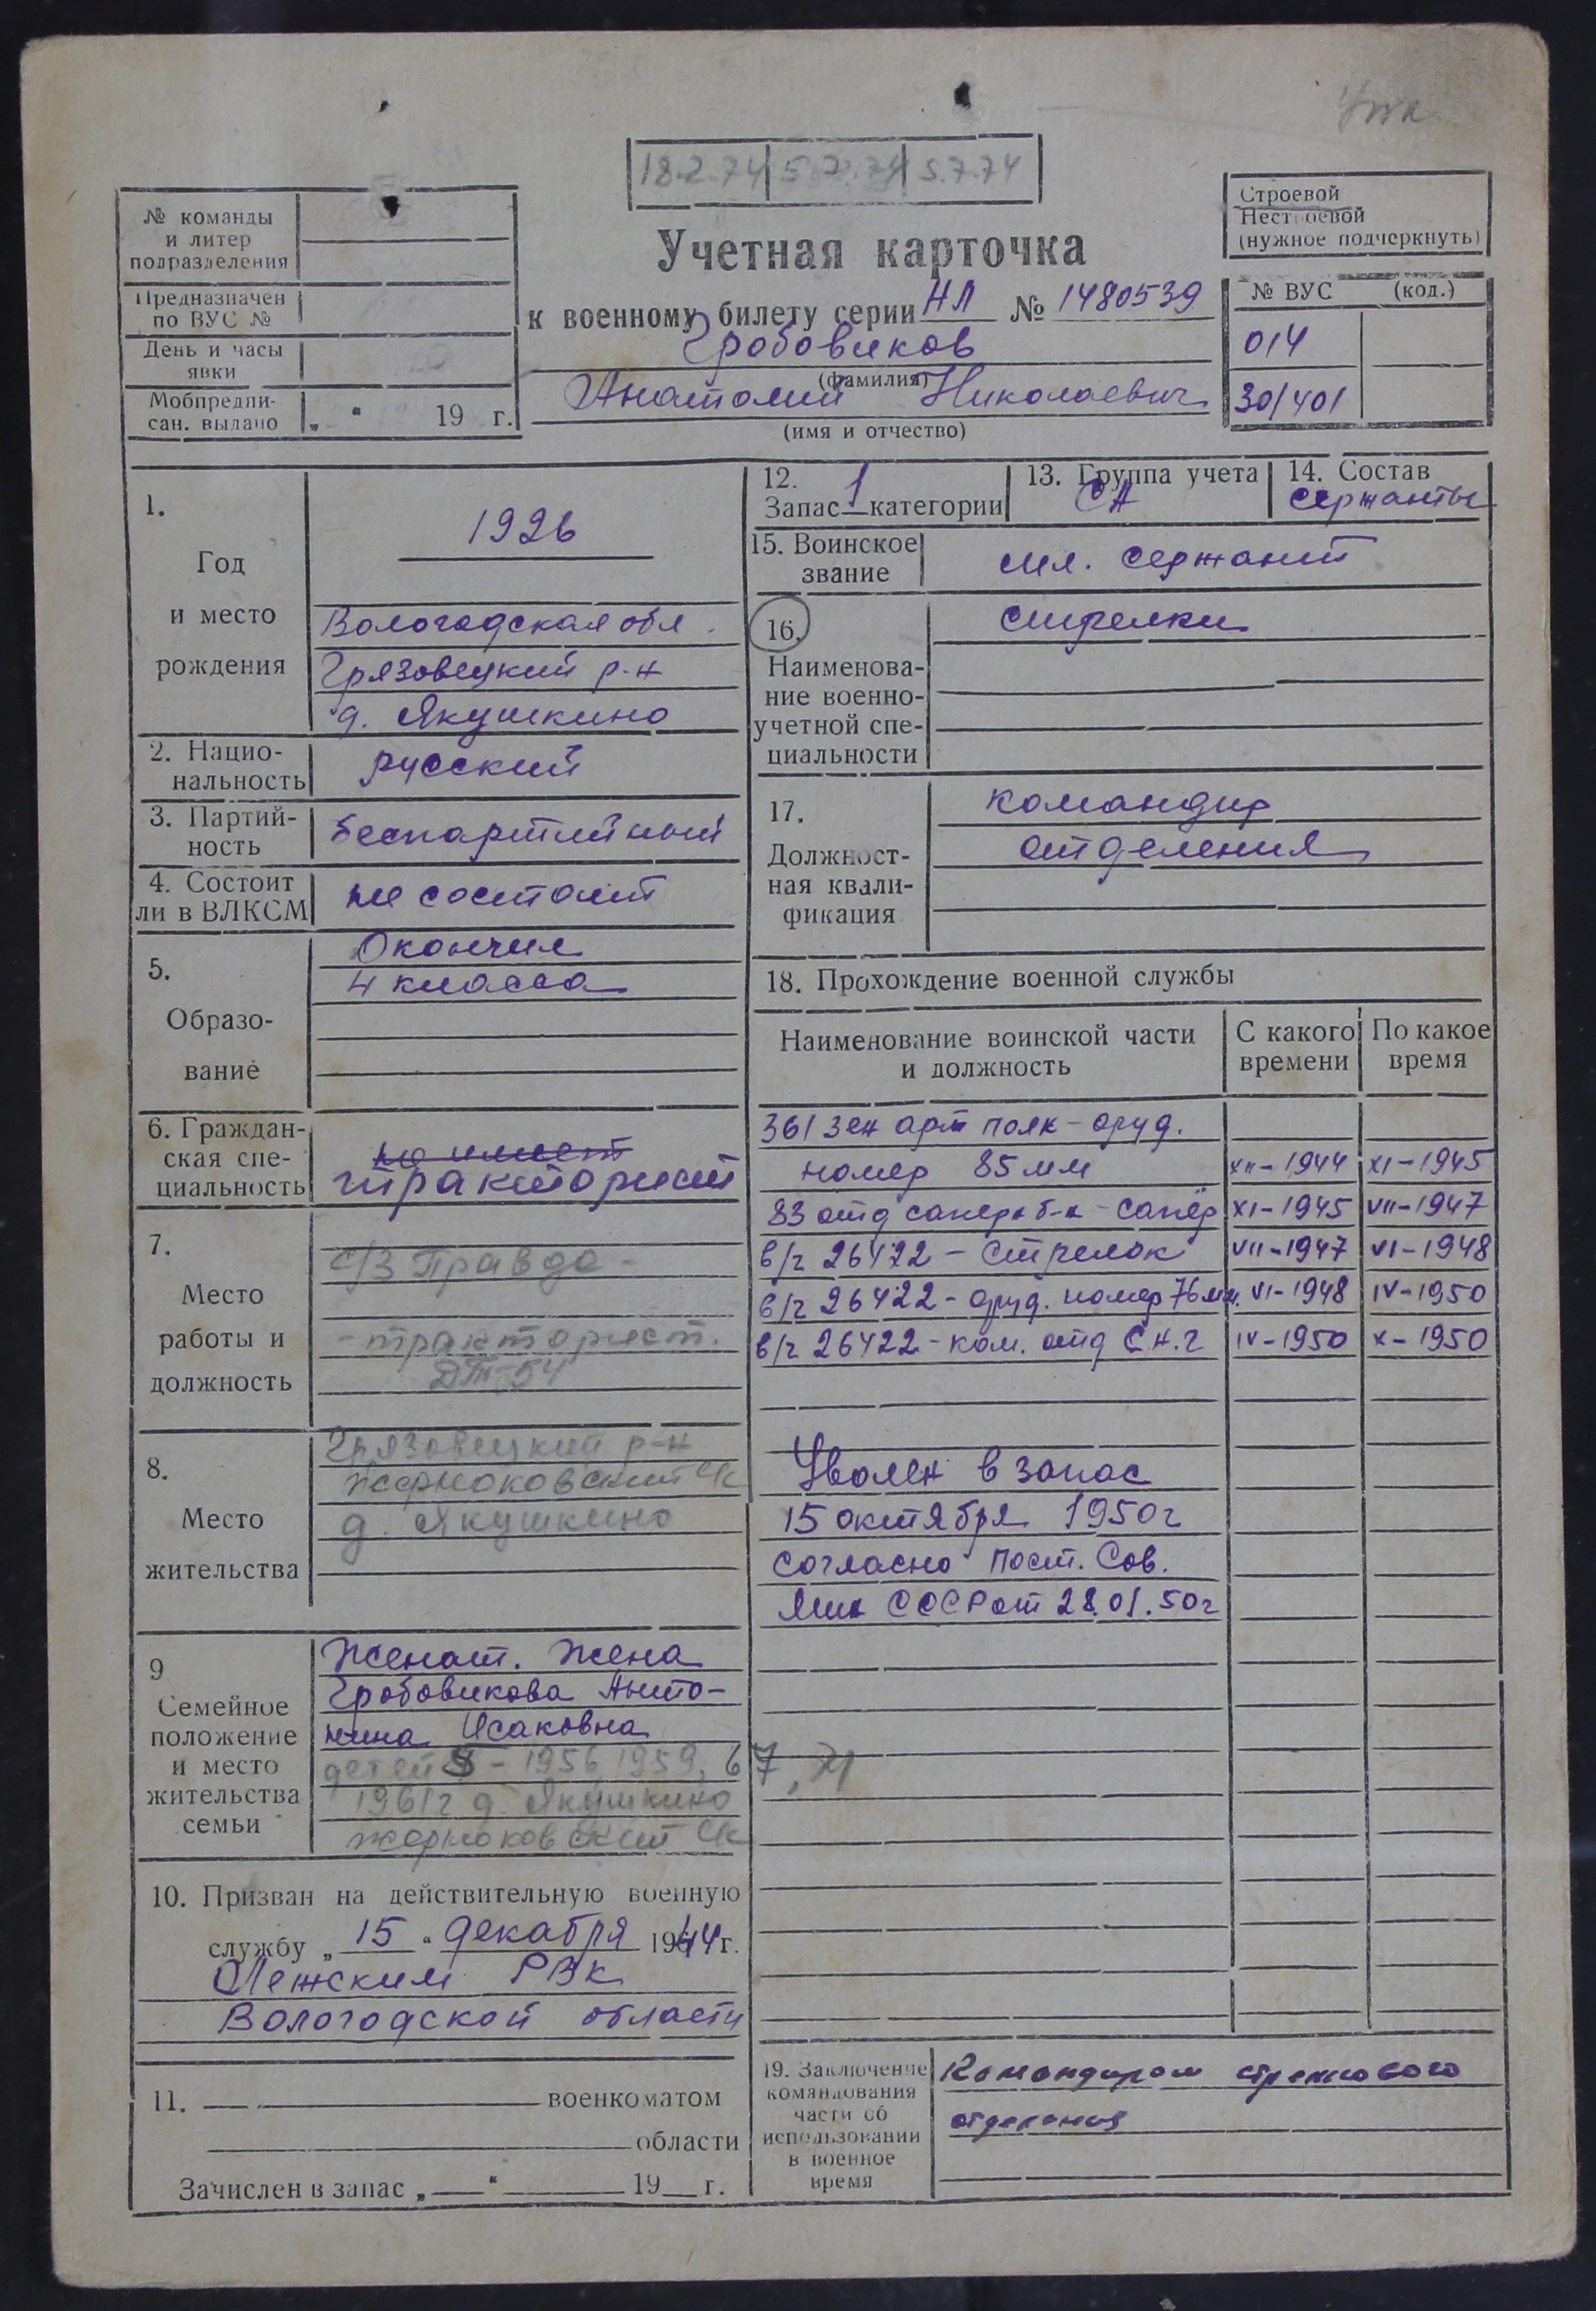 Упк
18.2.74 5.7.74 5.7.74
№ команды
и литер
подразделения
Предназначен
по ВУС №
День и часы
явки
Мобпредпи-
сан. выдано „ “ 19 г.
Строевой
Нестроевой
(нужное подчеркнуть)
Учетная карточка
к военному билету серии НЛ № 1480539
Гробовиков
(фамилия)
Анатолий Николаевич
(имя и отчество)
№ ВУС (код.)
014
30/401
1.
Год
и место
рождения
1926
Вологодская обл.
Грязовецкий р-н
д. Якушкино
2. Нацио-
нальность
русский
3. Партий-
ность
беспартийный
4. Состоит
ли в ВЛКСМ
не состоит
5.
Образо-
вание
Окончил
4 класса
6. Граждан-
ская спе-
циальность
не имеет
тракторист
7.
Место
работы и
должность
с/з Правда -
- тракторист.
ДТ-54
8.
Место
жительства
Грязовецкий р-н
д. Якушкино
9
Семейное
положение
и место
жительства
семьи
Женат. Жена
Гробовикова Анто-
нина Исаковна
детей - 1956, 1959, 67, 71
1961г д. Якушкино
10. Призван на действительную военную
службу „ 15 “ декабря 1944 г.
Лежским РВК
Вологодской области
11. военкоматом
области
Зачислен в запас „ “ 19 г.
12.
Запас 1 категории
13. Группа учета
СА
14. Состав
сержанты
15. Воинское
звание
мл. сержант
16.
Наименова-
ние военно-
учетной спе-
циальности
стрелки
17.
Должност-
ная квали-
фикация
командир
отделения
18. Прохождение военной службы
Наименование воинской части
и должность
С какого
времени
По какое
время
361 зен арт полк - оруд.
номер 85 мм XII-1944 XI-1945
83 отд саперн б-н - сапёр XI-1945 VII-1947
в/ч 26422 - стрелок VII-1947 VI-1948
в/ч 26422 - оруд. номер 76 мм. VI-1948 IV-1950
в/ч 26422 - ком. отд С.Н.Г IV-1950 X-1950
Уволен в запас
15 октября 1950г
согласно пост. Сов.
Мин СССР от 28.01.50г
19. Заключение
командования
части об
использовании
в военное
время
Командиром стрелкового
отделения